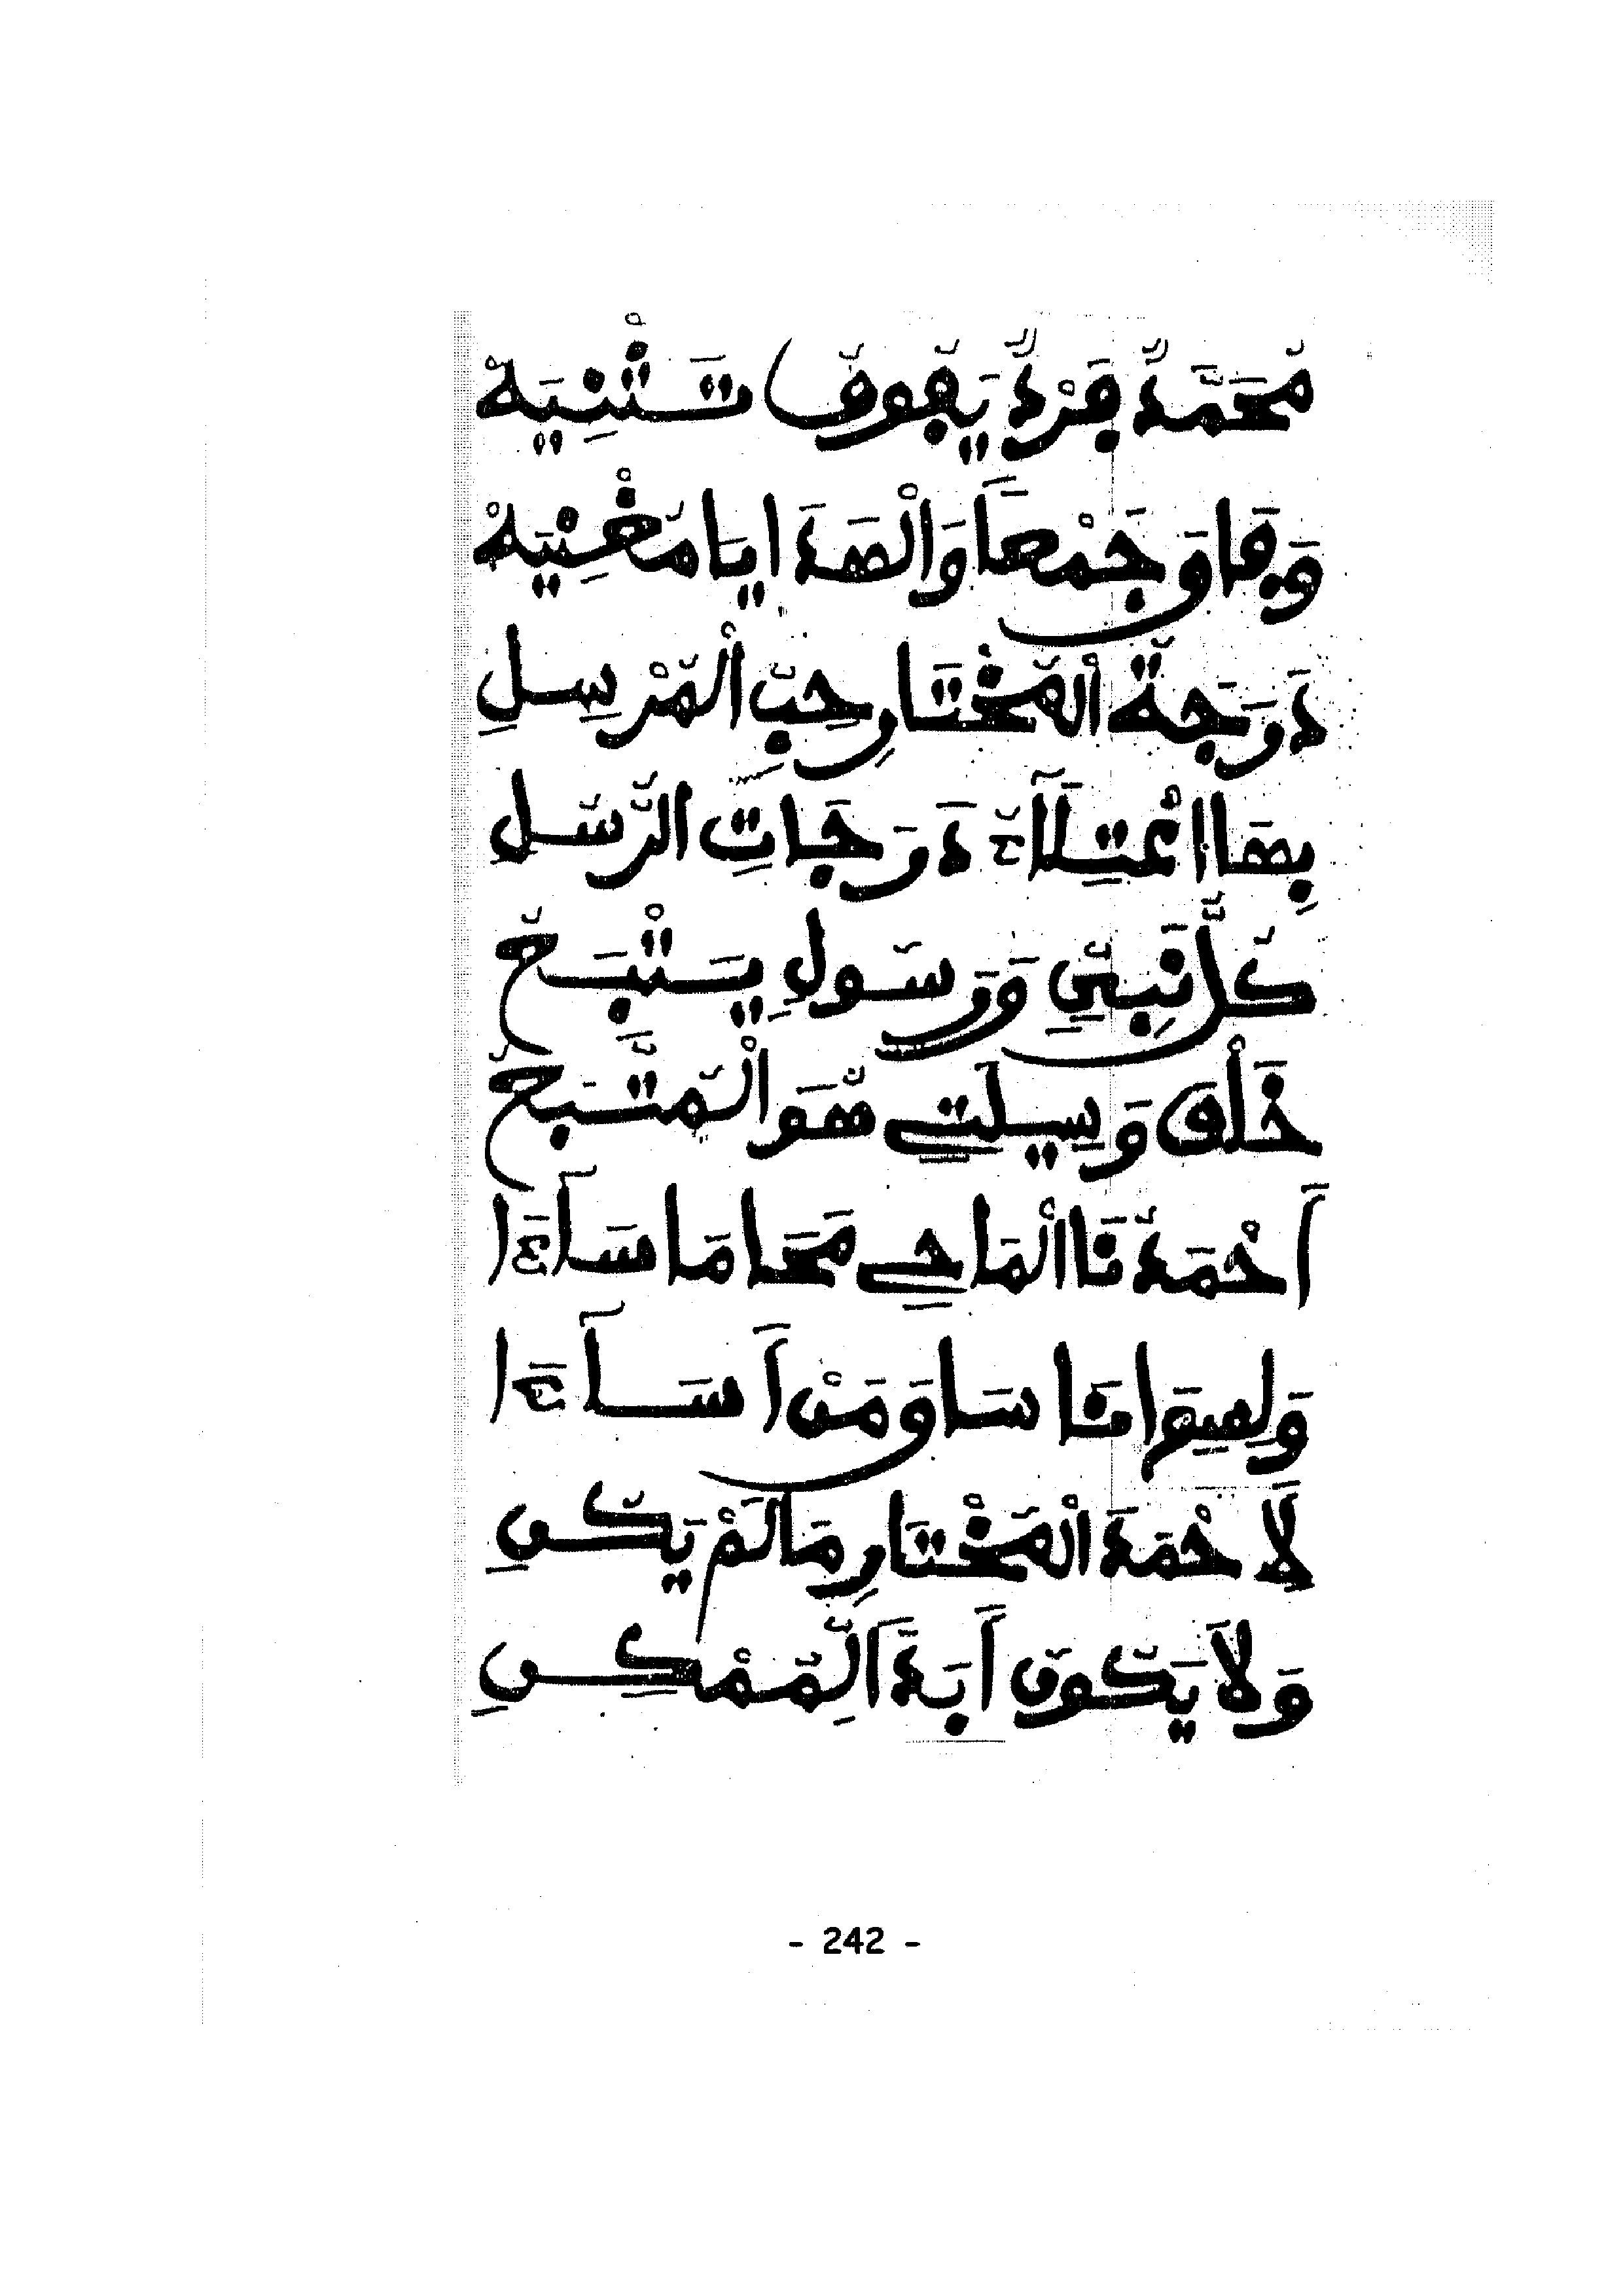 مُحَمَّدٌ فَرْدٌ يَفُوقُ تَثْنِيَهْ
وَفَاقَ جَمْعًا وَالْهُدَى ايَا مُغْنِيَهْ
دَرَجَةُ الْمُخْتَارِ حِبِّ الْمُرْسِلِ
بِهَا اعْتِلَاءُ دَرَجَاتِ الرُّسُلِ
كُلُّ نَبِيٍّ وَرَسُولٍ يَتْبَعُ
خَلْقَ وَسِيلَتِي هُوَ الْمُتَّبَعُ
أَحْمَدُنَا الْمَاحِي مَحَا مَا سَاءَا
وَلِسِوَانَا سَاقَ مَنْ أَسَاءَا
لِأَحْمَدَ الْمُخْتَارِ مَا لَمْ يَكُنِ
وَلَا يَكُونُ أَبَدًا لِمُمْكِنِ
- 242 -